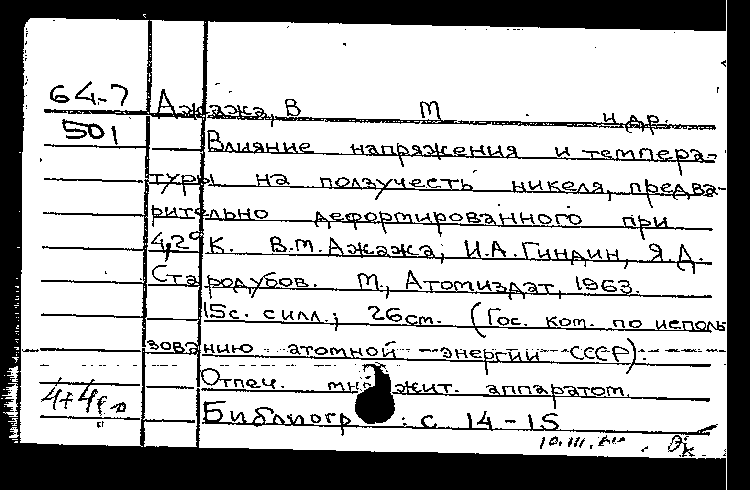 64-7
Ажажа, В М и др.
501
Влияние напряжения и темпера-
туры на ползучесть никеля, предва-
рительно деформированного при
4,2° К. В.М. Ажажа, И.А. Гиндин, Я.Д.
Стародубов. М., Атомиздат, 1963.
15с. с илл.; 26см. (Гос. ком. по исполь
зованию атомной энергии СССР).
Отпеч. множит. аппаратом.
Библиогр : с 14-15